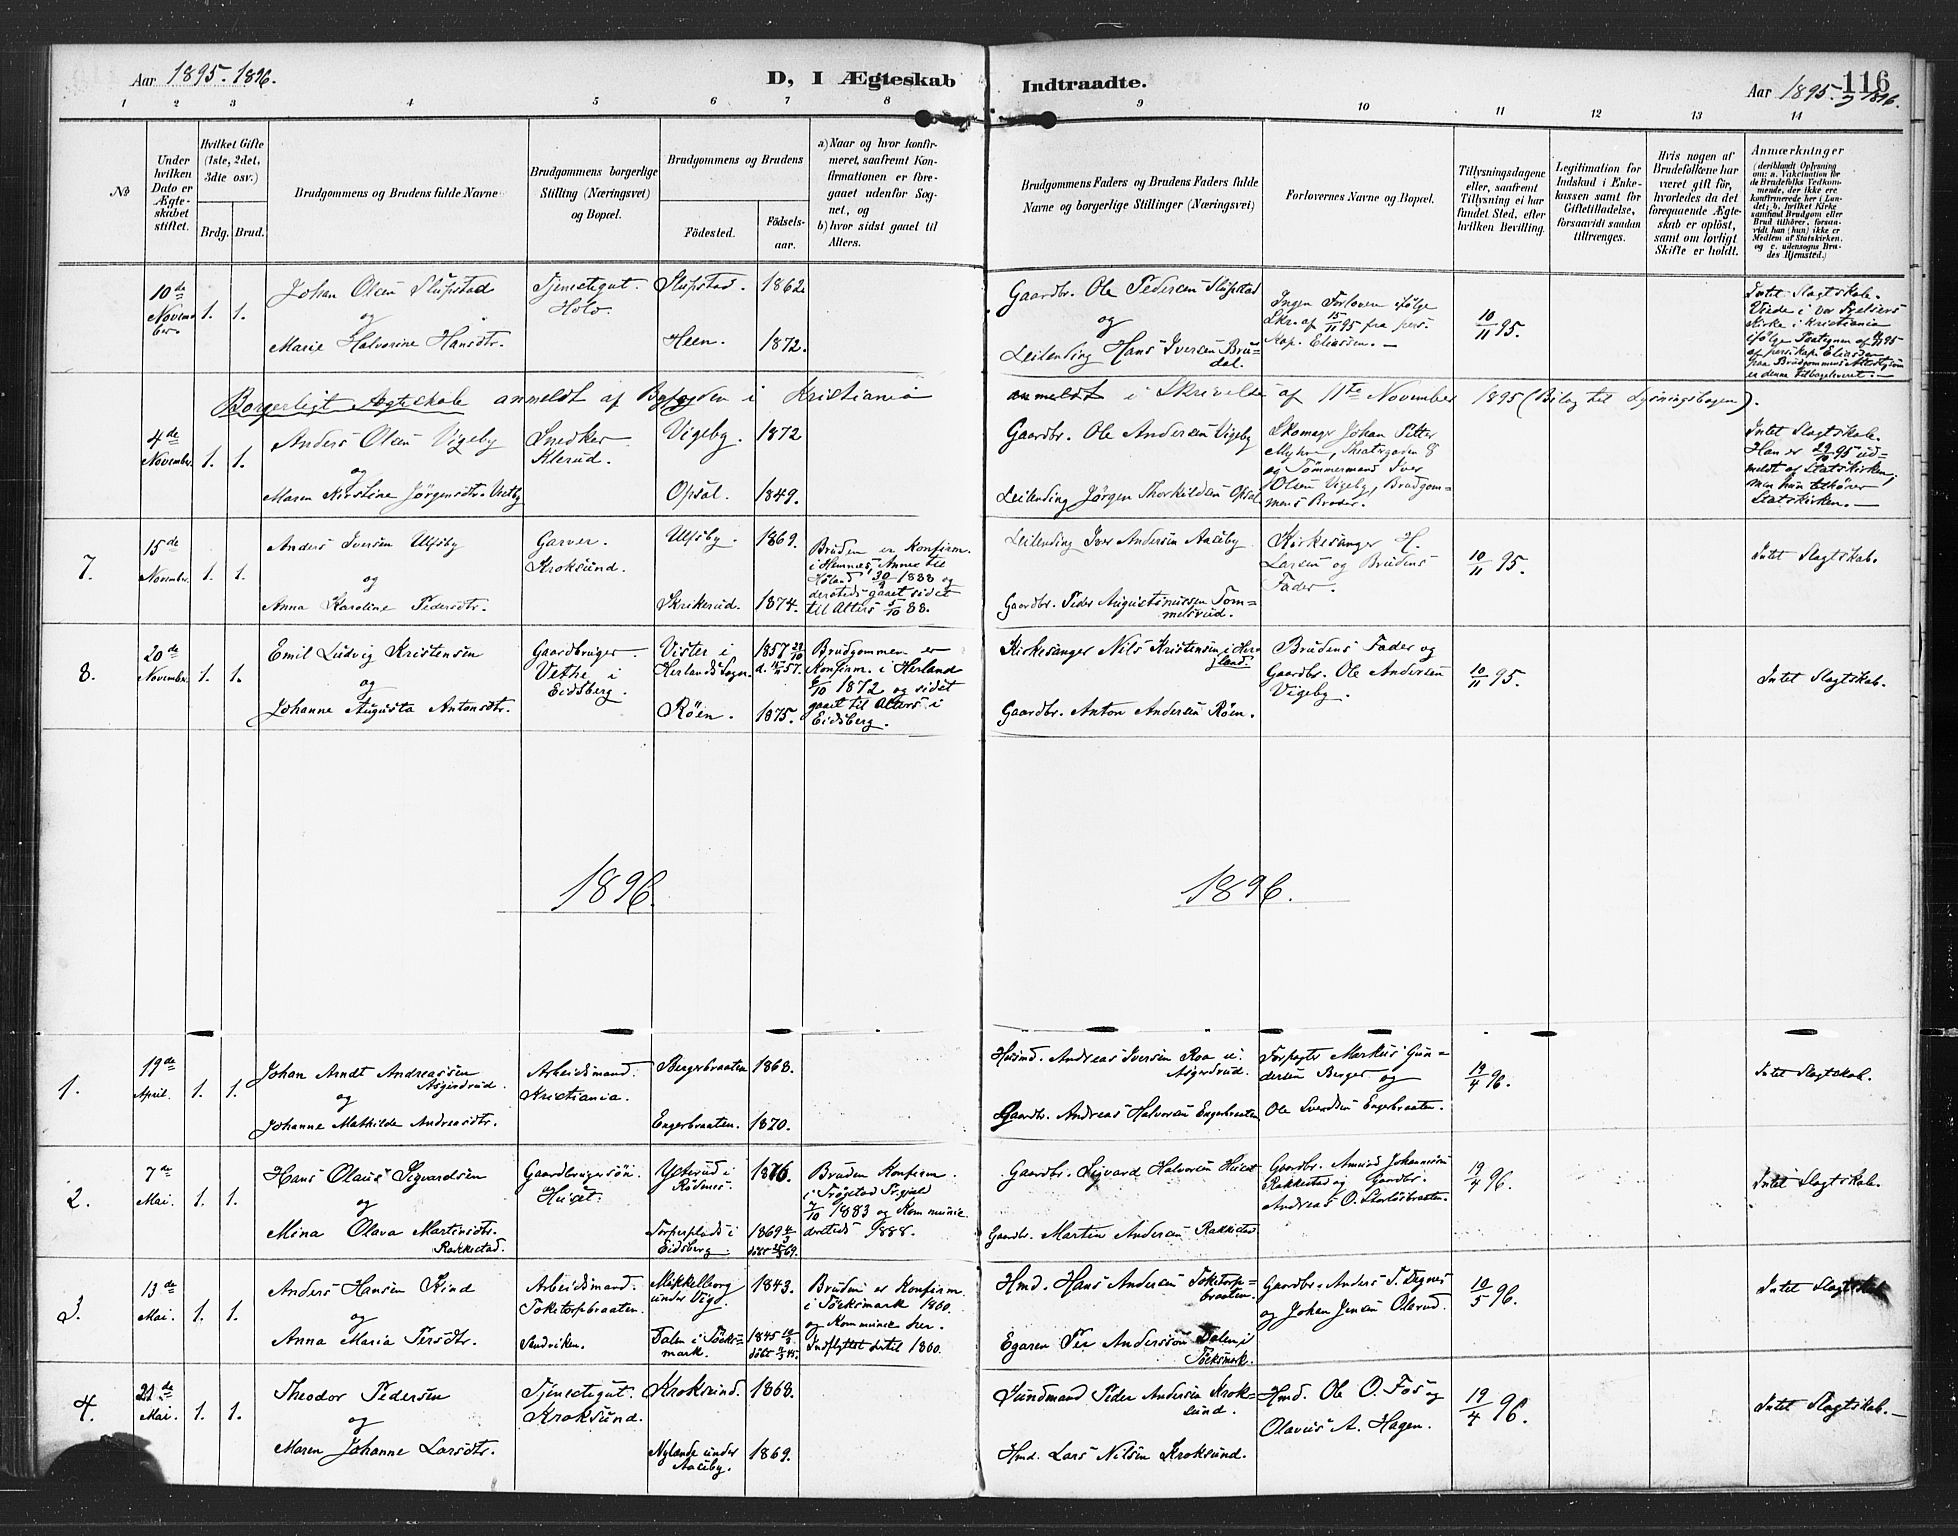 Aar 1895. 1896.
D, I Ægteskab
Indtraadte.
Aar 1895. 1896.
116
1 2 3 4 5 6 7 8 9 10 11 12 13 14
No
Under hvilken Dato er Ægteskabet stiftet.
Hvilket Gifte (1ste, 2det, 3die osv.)
Brdg. Brud.
Brudgommens og Brudens fulde Navne
Brudgommens borgerlige Stilling (Næringsvei) og Bopæl.
Brudgommens og Brudens
Fødested.
Fødselsaar.
a) Naar og hvor konfirmeret, saafremt Konfirmationen er foregaaet udenfor Sognet, og
b) hvor sidst gaaet til Alters.
Brudgommens Faders og Brudens Faders fulde Navne og borgerlige Stillinger (Næringsvei)
Forlovernes Navne og Bopæl.
Tillysningsdagene eller, saafremt Tillysning ei har fundet Sted, efter hvilken Bevilling.
Legitimation for Indskud i Enkekassen samt for Giftetilladelse, forsaavidt saadan tiltrænges.
Hvis nogen af Brudefolkene har været gift før, hvorledes da det foregaaende Ægteskab er opløst, samt om lovligt Skifte er holdt.
Anmærkninger
(deriblandt Oplysning om: a. Vakcination for de Brudefolks Vedkommende, der ikke ere konfirmerede her i Landet; b. hvilket Kirkesamfund Brudgom eller Brud tilhører, forsaavidt han (hun) ikke er Medlem af Statskirken, og c. udensogns Brudes Hjemsted.)
10de November 1. 1.
Johan Olsen Slupstad
og
Marie Halvorine Hansdtr.
Tjenestegut. Holo.
Slupstad. 1862
Heen. 1872.
Gaardbr. Ole Pedersen Slupstad
og
Leilending Hans Iversen Brudal.
Ingen Forlovere ifølge Skr. af 15/11 95 fra pers. Kap. Eliassen. -
10/11 95.
Intet Slagtskab.
Viede i Vor Frelsers Kirke i Kristiania ifølge
af pers. Kap. Eliassen
paa Brudgommens Attest, som er denne tilbageleveret. -
Borgerligt Ægteskab anmeldt af Byfogden i Kristiania
anmeldt i Skrivelse af 11te November 1895 (Bilag til Lysningsbogen).
4de November. 1. 1.
Anders Olsen Vigeby
og
Maren Kirstine Jørgensdtr.
Snedker Klerud.
Vigeby. 1872
Opsal. 1849.
Gaardbr. Ole Andersen Vigeby
Leilending Jørgen Thorkildsen Opsal
Skomager Johan Petter Myhre, Theatergaden 8
og Tømmermand Iver Olsen Vigeby, Brudgommens Broder.
Intet Slagtskab.
Han er 29/10 95 udmeldt af Statskirken, men hun tilhører Statskirken. -
7. 15de November. 1. 1.
Anders Iversen Ulfsby
og
Anna Karoline Pedersdtr.
Garver. Kroksund.
Ulfsby. 1869.
Skrikerud. 1874.
Bruden er Konfirm. i Hemnes, Annex til Høland 30/9 1888 og dersteds gaaet sidst til Alters 5/10 88.
Leilending Iver Andersen Aaseby
Gaardbr. Peder Augustinussen Tommelsrud.
Kirkesanger H. Larsen og Brudens Fader.
10/11 95.
Intet Slagtskab.
8. 20de November. 1. 1.
Emil Ludvig Kristensen
og
Johanne Augusta Antonsdtr.
Gaardbruger Vethe i Eidsberg.
Vister i Herlands Sogn. 1857
Røen. 1875.
Brudgommen er Konfirm. i Herland 6/10 1872 og sidst gaaet til Alters i Eidsberg.
Kirkesanger Nils Kristensen i Herland.
Gaardbr. Anton Andersen Røen.
Brudens Fader og Gaardbr. Ole Andersen Vigeby.
10/11 95.
Intet Slagtskab.
1896. 1896.
1. 19de April. 1. 1.
Johan Arndt Andreassen Asgerdrud.
og
Johanne Mathilde Andreasdtr.
Arbeidsmand. Kristiania.
Bergerbraaten 1868.
Engerbraaten. 1870.
Husmd. Andreas Iversen Roa u. Asgerdrud.
Gaardbr. Andreas Halvorsen Engerbraaten
Forpagter Markus Gundersen Berger og
Ole Svendsen Engerbraaten.
19/4 96.
Intet Slagtskab.
2. 7de Mai. 1. 1.
Hans Olaus Sigvardsen
og
Mina Olava Martinsdtr. Rakkestad.
Gaardbrugersøn Huset.
Ysterud i Rødenes. 1876.
Torperplads i Eidsberg. 1869 døbt 69.
Bruden Konfirm. i Trøgstad Prgjeld 7/10 1883 og Kommunic. dersteds 1888.
Gaardbr. Sigvard Halvorsen Huset
Gaardbr. Martin Andersen Rakkestad
Gaardbr. Amund Johannesen Rakkestad og Gaardbr. Andreas O. Storlösbraaten.
19/4 96.
Intet Slagtskab.
3. 13de Mai. 1. 1.
Anders Hansen Kind
og
Anna Maria Persdtr.
Arbeidsmand. Toketorpbraaten.
Sandviken.
Mikkelborg under Vigg. 1843.
Dalen i Töcksmark. 1845 døbt 45.
Bruden er Konfirm. i Töcksmark 1860. og Kommunic. her. Indflyttet dertil 1860.
Hmd. Hans Andersen Toketorpbraaten.
Egaren Per Anderssøn Dalen i Töcksmark.
Gaardbr. Anders T. Degnes og Johan Jensen Olerud.
10/5 96.
Intet Slagtskab
4. 21de Mai. 1. 1.
Theodor Pedersen
og
Maren Johanne Larsdtr.
Tjenestegut. Kroksund.
Kroksund. 1868.
Nylende under Aaseby. 1869.
Sundmand Peder Andersen Kroksund.
Hmd. Lars Nilsen Kroksund.
Hmd. Ole O. Fos og Olavus A. Hagen.
19/4 96.
Intet Slagtskab. -